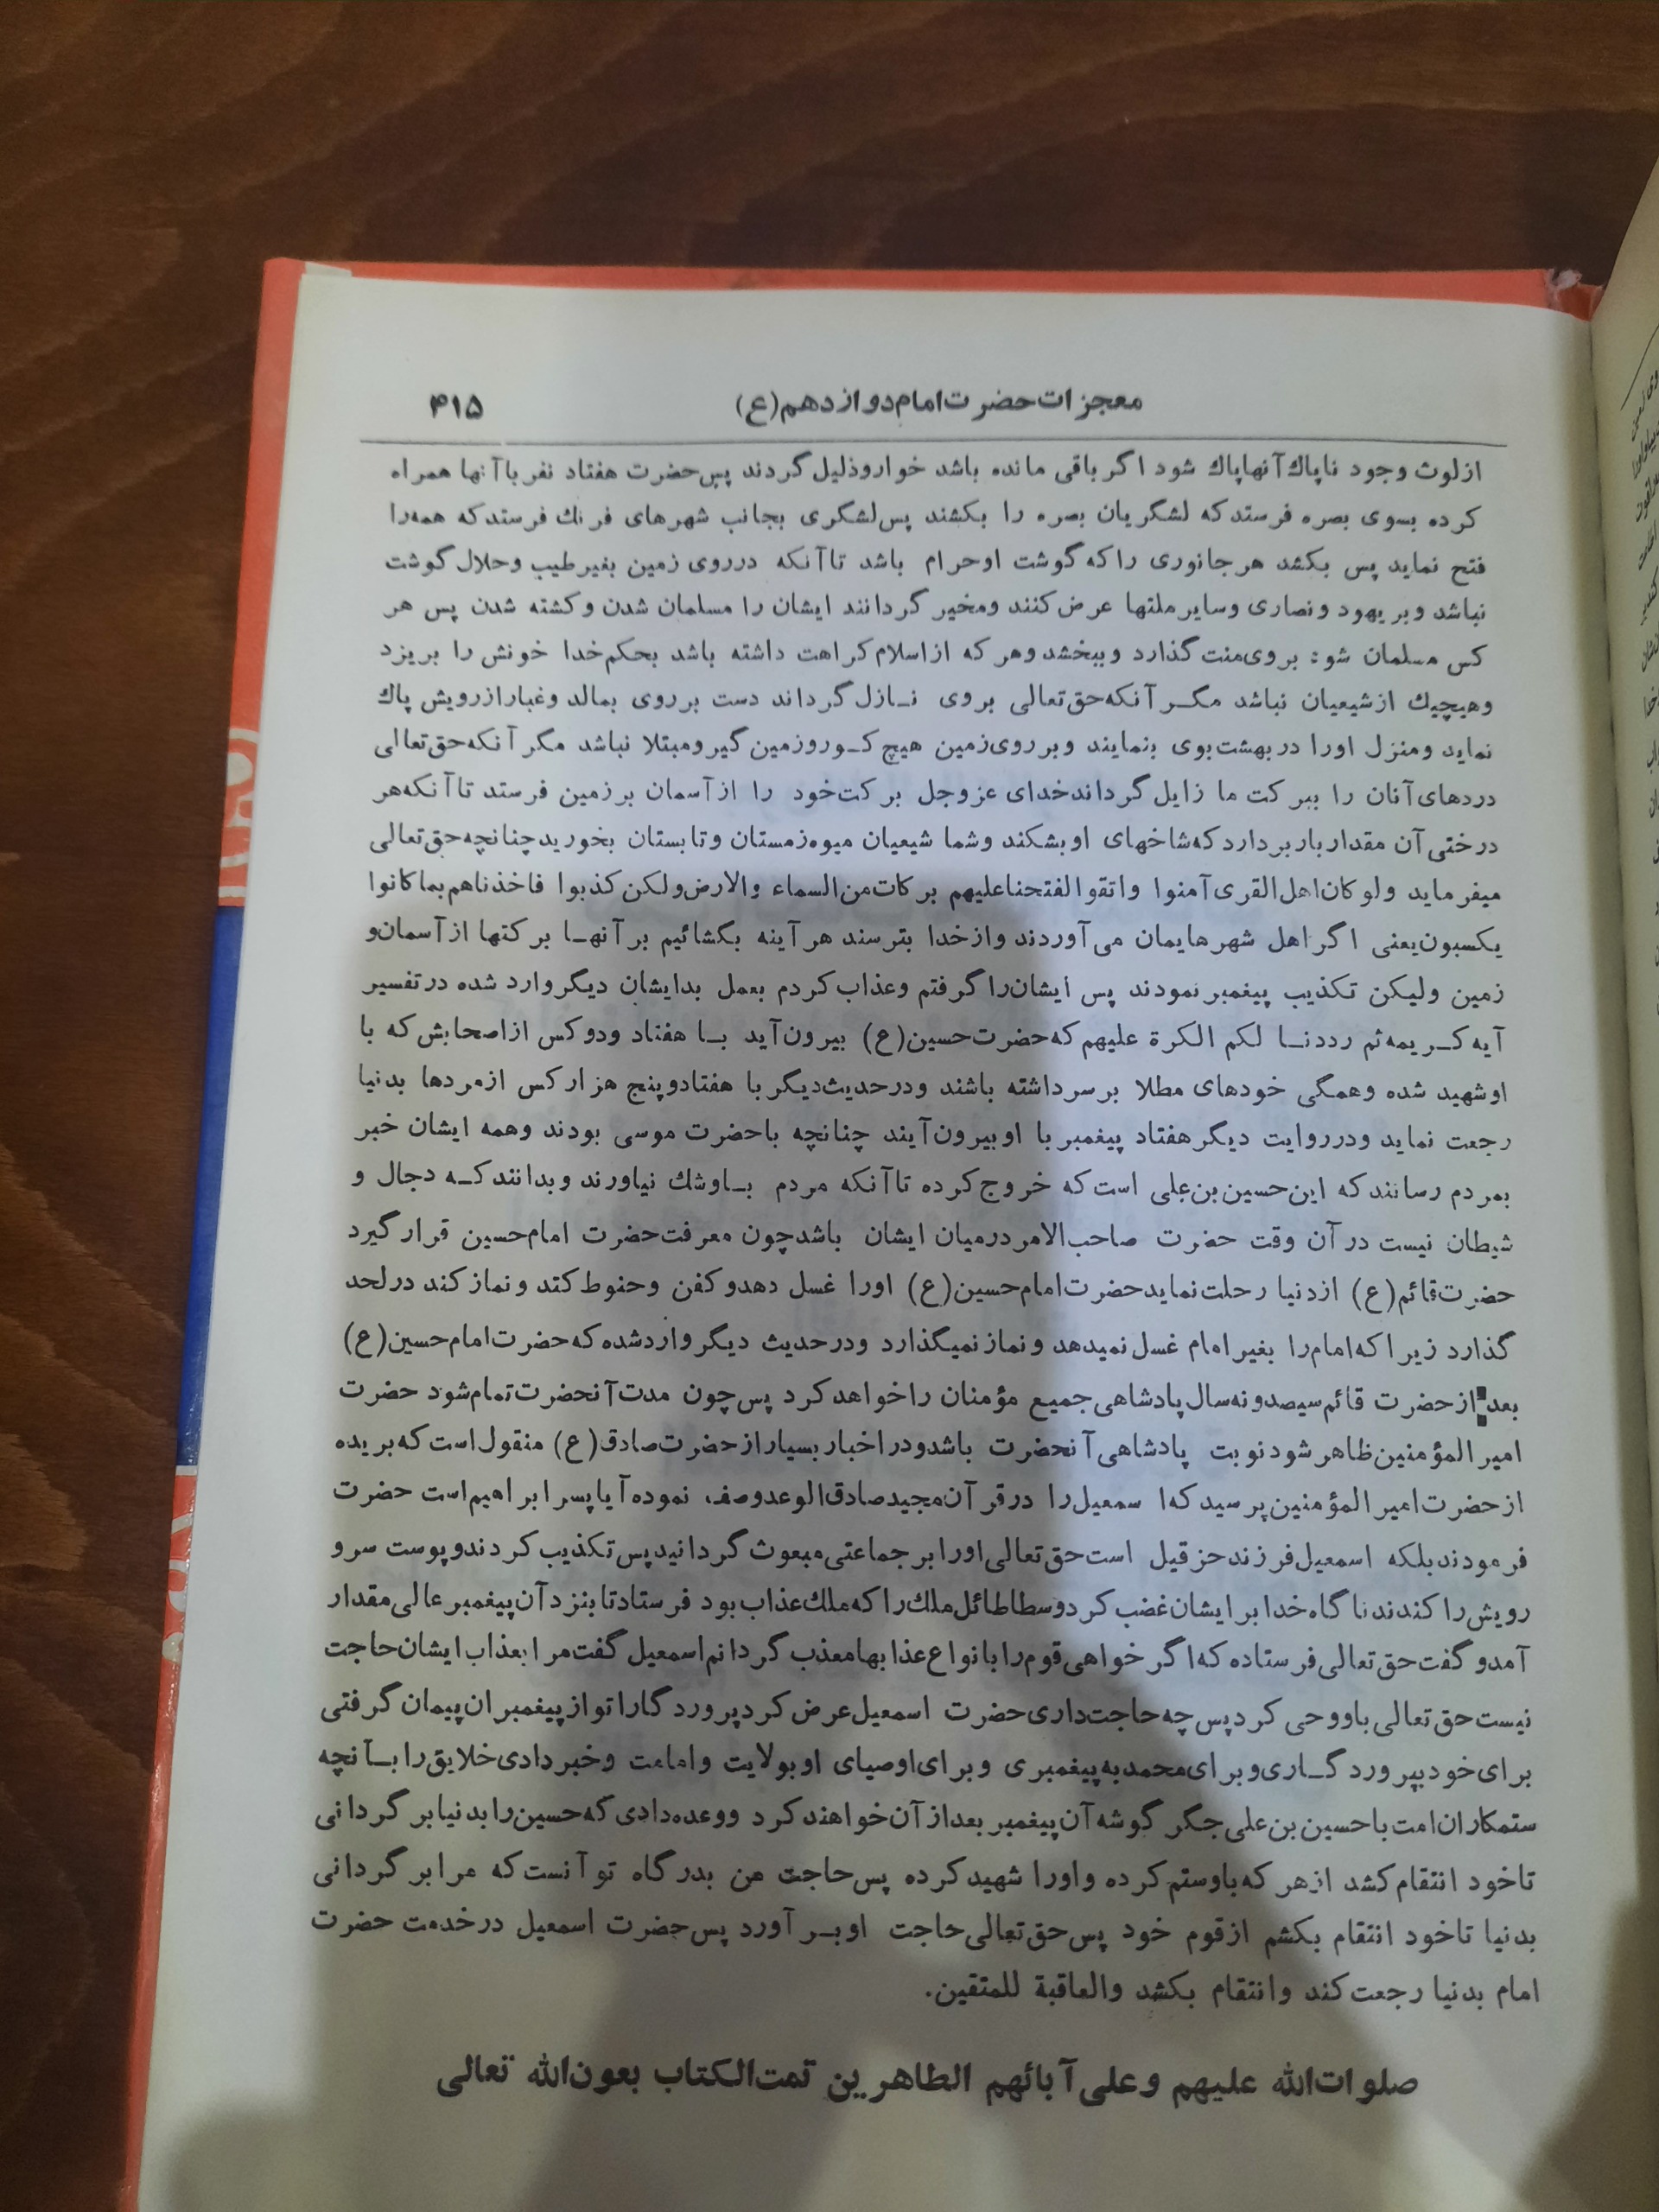 معجزات حضرت امام دوازدهم (ع)
۴۱۵
از لوث وجود ناپاك آنها پاك شود اگر باقی مانده باشد خوار و ذلیل گردند پس حضرت هفتاد نفر با آنها همراه
کرده بسوی بصره فرستد که لشگریان بصره را بکشند پس لشگری بجانب شهرهای فرنك فرستد که همه را
فتح نماید پس بکشد هر جانوری را که گوشت او حرام باشد تا آنکه در روی زمین بغیر طیب و حلال گوشت
نباشد و بر یهود و نصاری و سایر ملتها عرض کنند و مخیر گردانند ایشان را مسلمان شدن و کشته شدن پس هر
کس مسلمان شود بر وی منت گذارد و ببخشد و هر که از اسلام کراهت داشته باشد بحکم خدا خونش را بریزد
و هیچیك از شیعیان نباشد مگر آنکه حق تعالی بر وی نازل گرداند دست بر روی بمالد و غبار از رویش پاك
نماید و منزل او را در بهشت بوی بنمایند و بر روی زمین هیچ کور و زمین گیر و مبتلا نباشد مگر آنکه حق تعالی
دردهای آنان را ببرکت ما زایل گرداند خدای عز و جل برکت خود را از آسمان بر زمین فرستد تا آنکه هر
درختی آن مقدار بار بردارد که شاخهای او بشکند و شما شیعیان میوه زمستان و تابستان بخورید چنانچه حق تعالی
میفرماید ولو کان اهل القری آمنوا واتقوا لفتحنا علیهم برکات من السماء والارض ولکن کذبوا فاخذناهم بما کانوا
یکسبون یعنی اگر اهل شهرها ایمان می آوردند و از خدا بترسند هر آینه بگشائیم بر آنها برکتها از آسمان و
زمین ولیکن تکذیب پیغمبر نمودند پس ایشان را گرفتم و عذاب کردم بعمل بد ایشان دیگر وارد شده در تفسیر
آیه کریمه ثم رددنا لکم الکرة علیهم که حضرت حسین (ع) بیرون آید با هفتاد و دو کس از اصحابش که با
او شهید شده و همگی خودهای مطلا بر سر داشته باشند و در حدیث دیگر با هفتاد و پنج هزار کس از مردها بدنیا
رجعت نماید و در روایت دیگر هفتاد پیغمبر با او بیرون آیند چنانچه با حضرت موسی بودند و همه ایشان خبر
بمردم رسانند که این حسین بن علی است که خروج کرده تا آنکه مردم باو شك نیاورند و بدانند که دجال و
شیطان نیست در آن وقت حضرت صاحب الامر در میان ایشان باشد چون معرفت حضرت امام حسین قرار گیرد
حضرت قائم (ع) از دنیا رحلت نماید حضرت امام حسین (ع) او را غسل دهد و کفن و حنوط کند و نماز کند در لحد
گذارد زیرا که امام را بغیر امام غسل نمیدهد و نماز نمیگذارد و در حدیث دیگر وارد شده که حضرت امام حسین (ع)
بعد از حضرت قائم سیصد و نه سال پادشاهی جمیع مؤمنان را خواهد کرد پس چون مدت آنحضرت تمام شود حضرت
امیر المؤمنین ظاهر شود نوبت پادشاهی آنحضرت باشد و در اخبار بسیار از حضرت صادق (ع) منقول است که بریده
از حضرت امیر المؤمنین پرسید که اسمعیل را در قرآن مجید صادق الوعد وصف نموده آیا پسر ابراهیم است حضرت
فرمودند بلکه اسمعیل فرزند حزقیل است حق تعالی او را بر جماعتی مبعوث گردانید پس تکذیب کردند و پوست سر و
رویش را کندند ناگاه خدا بر ایشان غضب کرد و سطاطائل ملك را که ملك عذاب بود فرستاد تا بنزد آن پیغمبر عالی مقدار
آمد و گفت حق تعالی فرستاده که اگر خواهی قوم را بانواع عذابها معذب گردانم اسمعیل گفت مرا بعذاب ایشان حاجت
نیست حق تعالی باو وحی کرد پس چه حاجت داری حضرت اسمعیل عرض کرد پروردگارا تو از پیغمبران پیمان گرفتی
برای خود بپروردگاری و برای محمد به پیغمبری و برای اوصیای او بولایت و امامت و خبر دادی خلایق را بآنچه
ستمکاران امت با حسین بن علی جگر گوشه آن پیغمبر بعد از آن خواهند کرد و وعده دادی که حسین را بدنیا برگردانی
تا خود انتقام کشد از هر که باو ستم کرده و او را شهید کرده پس حاجت من بدرگاه تو آنست که مرا برگردانی
بدنیا تا خود انتقام بکشم از قوم خود پس حق تعالی حاجت او بر آورد پس حضرت اسمعیل در خدمت حضرت
امام بدنیا رجعت کند و انتقام بکشد والعاقبة للمتقین.
صلوات الله علیهم و علی آبائهم الطاهرین تمت الکتاب بعون الله تعالی